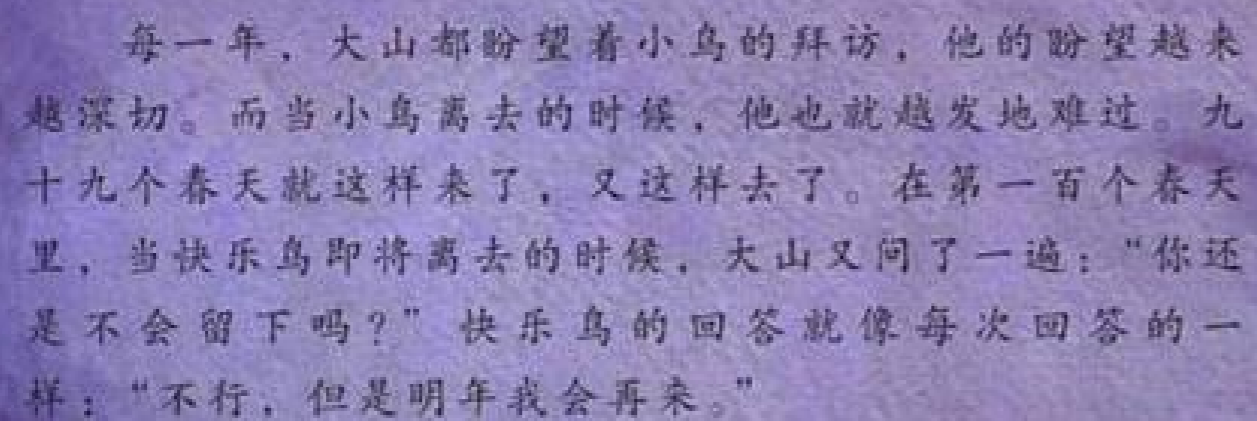 每一年，大山都盼望着小鸟的拜访，他的盼望越来
越深切。而当小鸟离去的时候，他也就越发地难过。九
十九个春天就这样来了，又这样去了。在第一百个春天
里，当快乐鸟即将离去的时候，大山又问了一遍：“你还
是不会留下吗？”快乐鸟的回答就像每次回答的一
样：“不行，但是明年我会再来。”